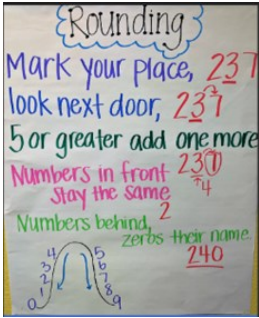 Rounding
Mark your place, 237
look next door, 237
5 or greater add one more
Numbers in front 237
stay the same 4
Numbers behind, 2
zeros their name.
240
4 5
3 6
2 7
1 8
0 9